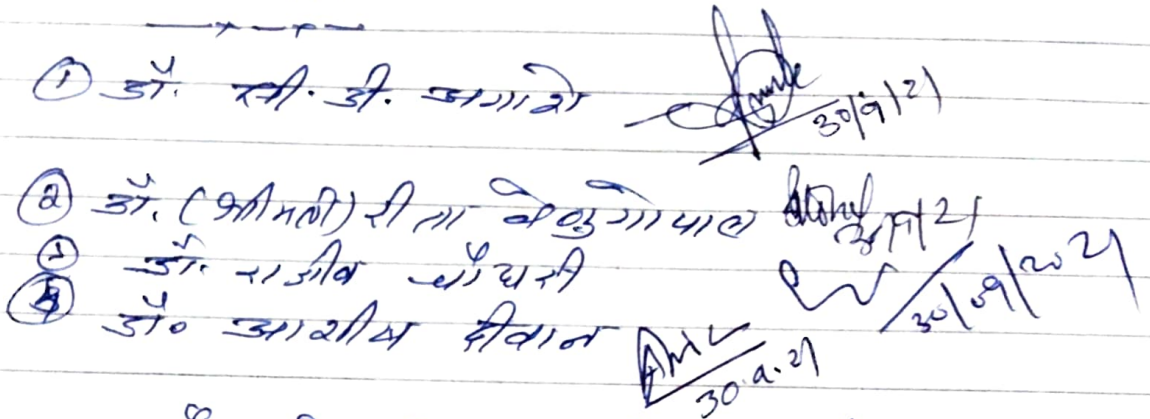 ① डॉ. सी. डी. आगाशे 30/9/21
② डॉ. (श्रीमती) रीता वेणुगोपाल 30/9/21
③ डॉ. राजीव चौधरी 30/09/2021
④ डॉ० आशीष दीवान 30.9.21